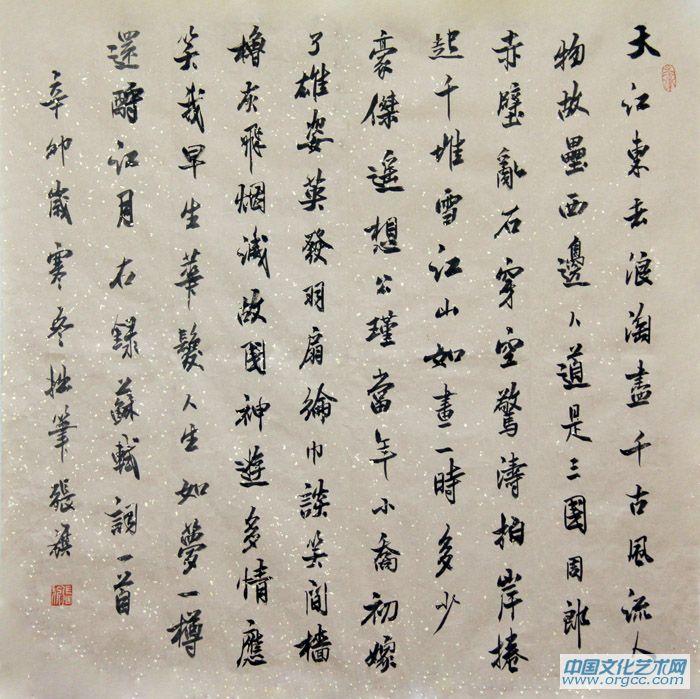 大江東去浪淘盡千古風流人
物故壘西邊人道是三國周郎
赤壁亂石穿空驚濤拍岸捲
起千堆雪江山如畫一時多少
豪傑遙想公瑾當年小喬初嫁
了雄姿英發羽扇綸巾談笑間檣
櫓灰飛烟滅故國神遊多情應
笑我早生華髮人生如夢一樽
還酹江月右錄蘇軾詞一首
辛卯歲寒冬拙筆張
中国文化艺术网
www.orgcc.com